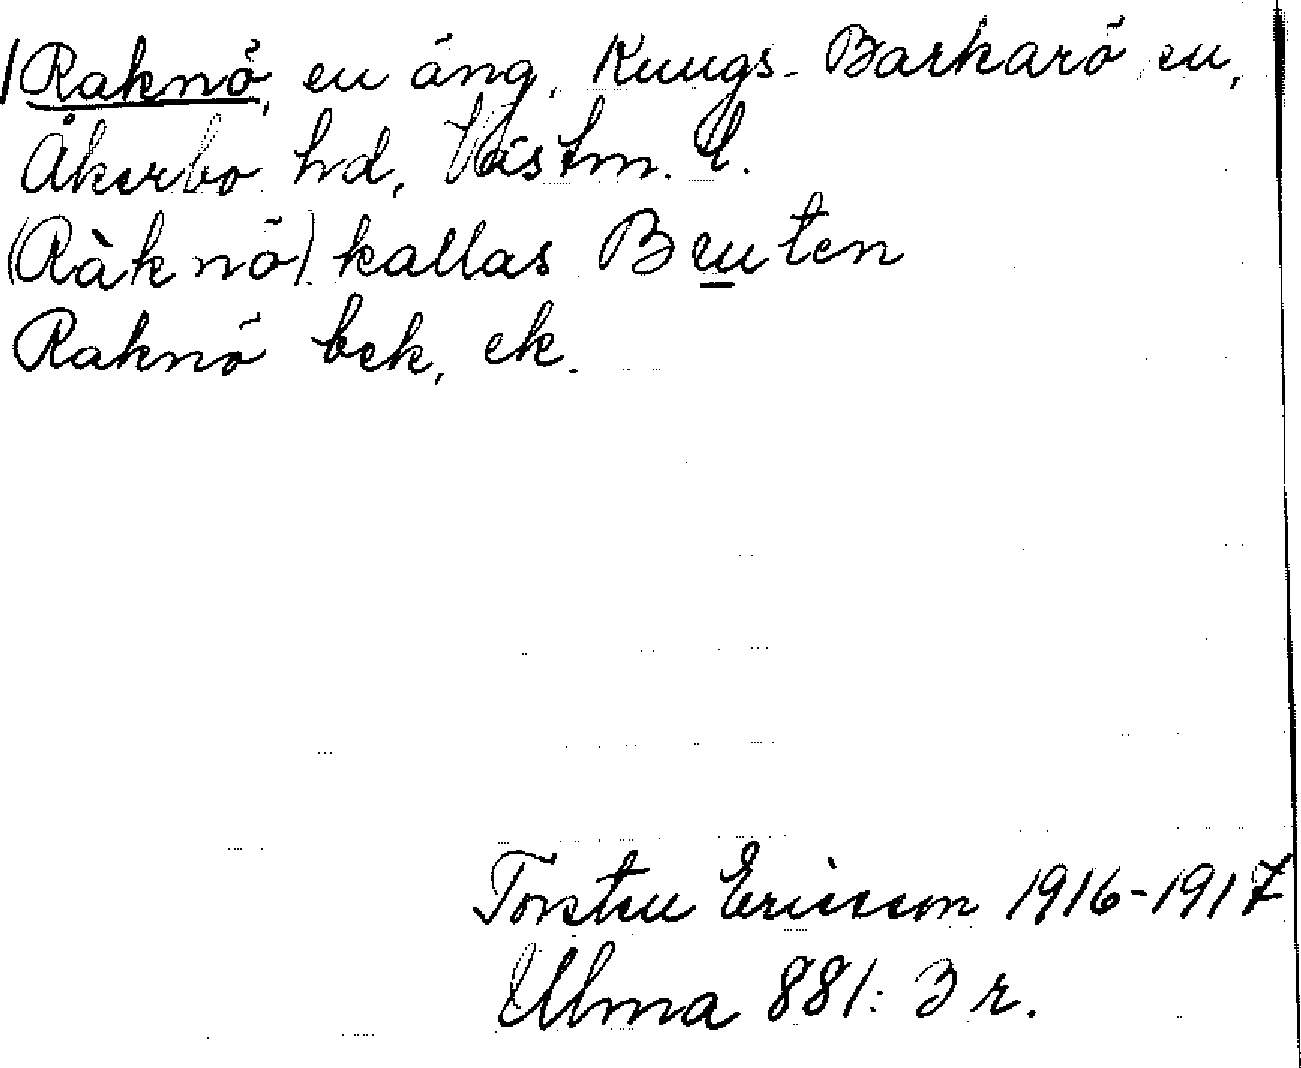 Raknö, en äng, Kungs-Barkarö sn,
Åkerbo hd, Västm. l.
(Ràknö) kallas
Raknö bek, ek.
Torsten Ericsson 1916-1917
Ulma 881: 3 r.